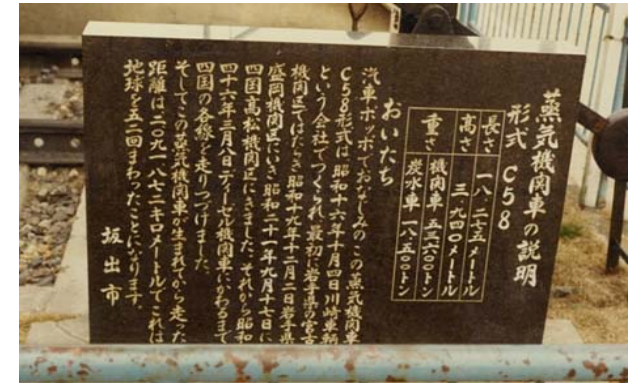 蒸気機関車の説明
形式 C58
長さ 一八.二七五メートル
高さ 三.九四〇メートル
重さ 機関車 五八.六〇〇トン
炭水車 一八.五〇〇トン
おいたち
汽車ポッポでおなじみのこの蒸気機関車
C58形式は、昭和十六年十月四日川崎車輌
という会社でつくられ、最初に岩手県の宮古
機関区ではたらき、昭和十九年十二月二日岩手県
盛岡機関区にいき、昭和二十一年九月十七日に
四国高松機関区にきました。それから昭和
四十六年三月八日ディーゼル機関車にかわるまで
四国の各線を走りつづけました。
そしてこの蒸気機関車が生まれてから走った
距離は二〇九一八七二キロメートルでこれは
地球を五二回まわったことになります。
坂出市